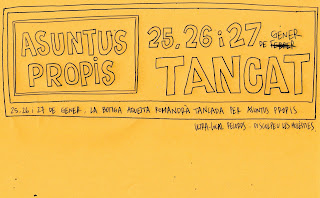 ASUNTUS PROPIS
25, 26 i 27 DE FEBRER GENER
TANCAT
25, 26 i 27 DE GENER. LA BOTIGA AQUESTA ROMANDRÀ TANCADA PER ASUNTUS PROPIS
ULTRA-LOCAL RECORDS. DISCULPEU LES MOLÈSTIES.